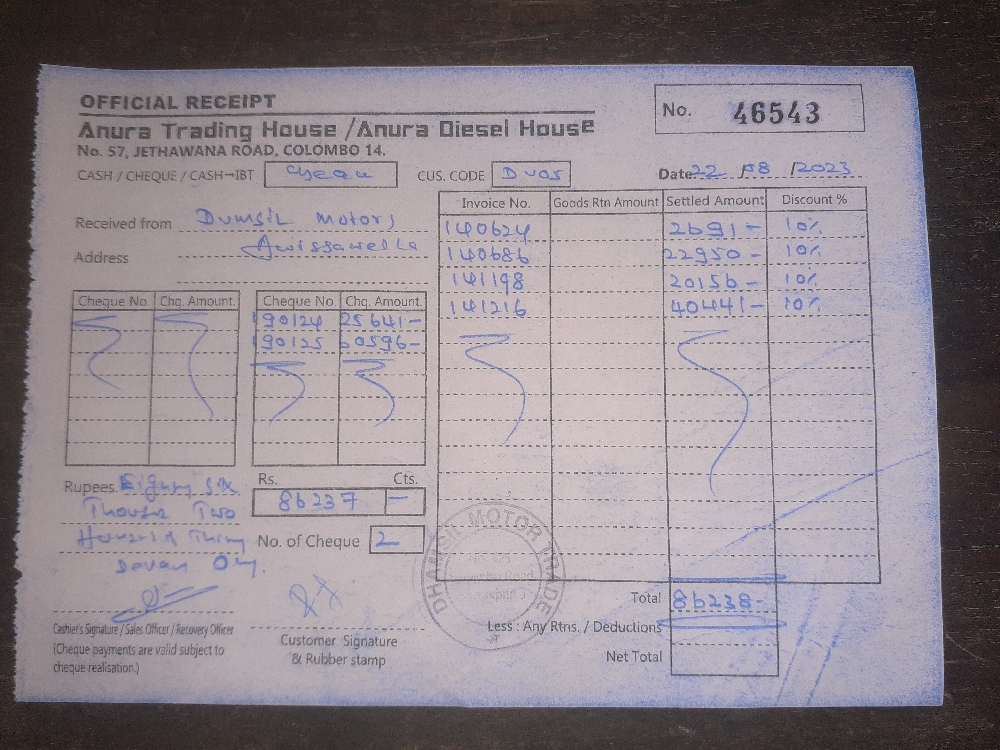 OFFICIAL RECEIPT
No. 46543
Anura Trading House /Anura Diesel House
No. 57, JETHAWANA ROAD, COLOMBO 14.
CASH / CHEQUE / CASH-IBT Cheque CUS. CODE Date 22 / 08 / 2023
Received from Dumsil Motors
Address Awissawella
Invoice No. Goods Rtn Amount Settled Amount Discount %
140624 2691 - 10%
140686 22950 - 10%
141198 20156 - 10%
141216 40441 - 10%
Cheque No. Chq. Amount. Cheque No Chq. Amount.
190124 25641 -
190125 60596 -
Rupees Eighty Six
Thousn Two
Hundred Thirty
Sevan Only.
Rs. Cts.
86237 -
No. of Cheque 2
DHAMSIL MOTOR TRADE
Total 86238 -
Less : Any Rtns. / Deductions
Net Total
Cashier's Signature / Sales Officer / Recovery Officer
(Cheque payments are valid subject to
cheque realisation.)
Customer Signature
& Rubber stamp